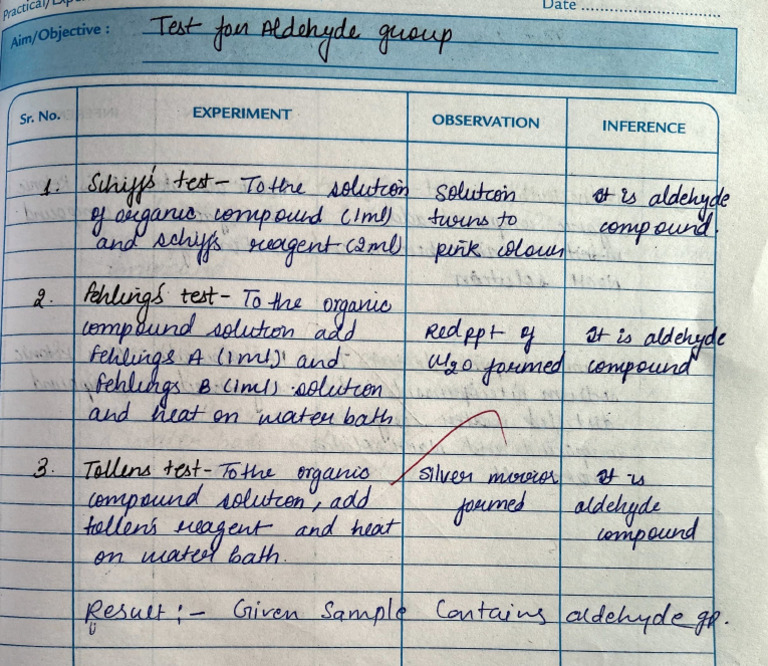 Practical/Expe
Date
Aim/Objective : Test for Aldehyde group
Sr. No. EXPERIMENT OBSERVATION INFERENCE
1. Schiff's test - To the solution Solution It is aldehyde
of organic compound (1ml) turns to compound.
and schiff's reagent (2ml) pink colour
2. Fehling's test - To the organic
compound solution add Red ppt of It is aldehyde
Fehlings A (1ml) and Cu2O formed compound
Fehlings B (1ml) solution
and heat on water bath
3. Tollens test - To the organic silver mirror It is
compound solution, add formed aldehyde
tollen's reagent and heat compound
on water bath.
Result :- Given Sample Contains aldehyde gp.